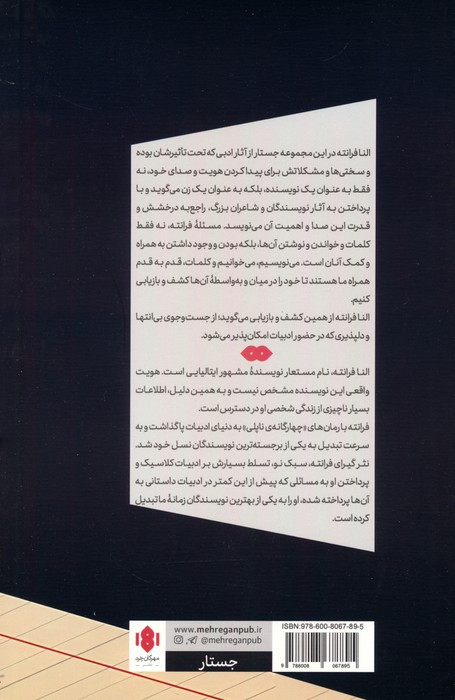 النا فرانته در این مجموعه جستار از آثار ادبی که تحت تأثیرشان بوده
و سختی‌ها و مشکلاتش برای پیدا کردن هویت و صدای خود، نه
فقط به عنوان یک نویسنده، بلکه به عنوان یک زن می‌گوید و با
پرداختن به آثار نویسندگان و شاعران بزرگ، راجع‌به درخشش و
قدرت این صدا و اهمیت آن می‌نویسد. مسئلهٔ فرانته، نه فقط
کلمات و خواندن و نوشتن آن‌ها، بلکه بودن و وجود داشتن به همراه
و کمک آنان است. می‌نویسیم، می‌خوانیم و کلمات، قدم به قدم
همراه ما هستند تا خود را در میان و به‌واسطهٔ آن‌ها کشف و بازیابی
کنیم.
النا فرانته از همین کشف و بازیابی می‌گوید؛ از جست‌وجوی بی‌انتها
و دلپذیری که در حضور ادبیات امکان‌پذیر می‌شود.
النا فرانته، نام مستعار نویسندهٔ مشهور ایتالیایی است. هویت
واقعی این نویسنده مشخص نیست و به همین دلیل، اطلاعات
بسیار ناچیزی از زندگی شخصی او در دسترس است.
فرانته با رمان‌های «چهارگانه‌ی ناپلی» به دنیای ادبیات پا گذاشت و به
سرعت تبدیل به یکی از برجسته‌ترین نویسندگان نسل خود شد.
نثر گیرای فرانته، سبک نو، تسلط بسیارش بر ادبیات کلاسیک و
پرداختن او به مسائلی که پیش از این کمتر در ادبیات داستانی به
آن‌ها پرداخته شده، او را به یکی از بهترین نویسندگان زمانهٔ ما تبدیل
کرده است.
www.mehreganpub.ir
@mehreganpub
جستار
مهرگان خرد
ISBN: 978-600-8067-89-5
9 786008 067895